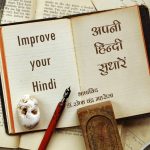 Improve
your
Hindi
अपनी
हिन्दी
सुधारें